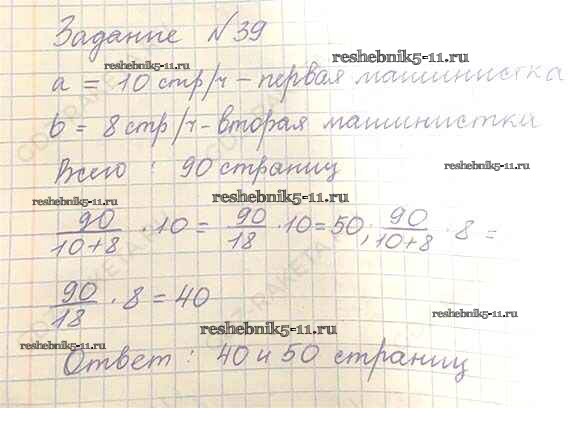 Задание №39
reshebnik5-11.ru
a = 10 стр/ч - первая машинистка
b = 8 стр/ч - вторая машинистка
Всего : 90 страниц
reshebnik5-11.ru
reshebnik5-11.ru
reshebnik5-11.ru
90/10+8 · 10 = 90/18 · 10 = 50, 90/10+8 · 8 =
90/18 · 8 = 40
reshebnik5-11.ru
reshebnik5-11.ru
reshebnik5-11.ru
Ответ : 40 и 50 страниц